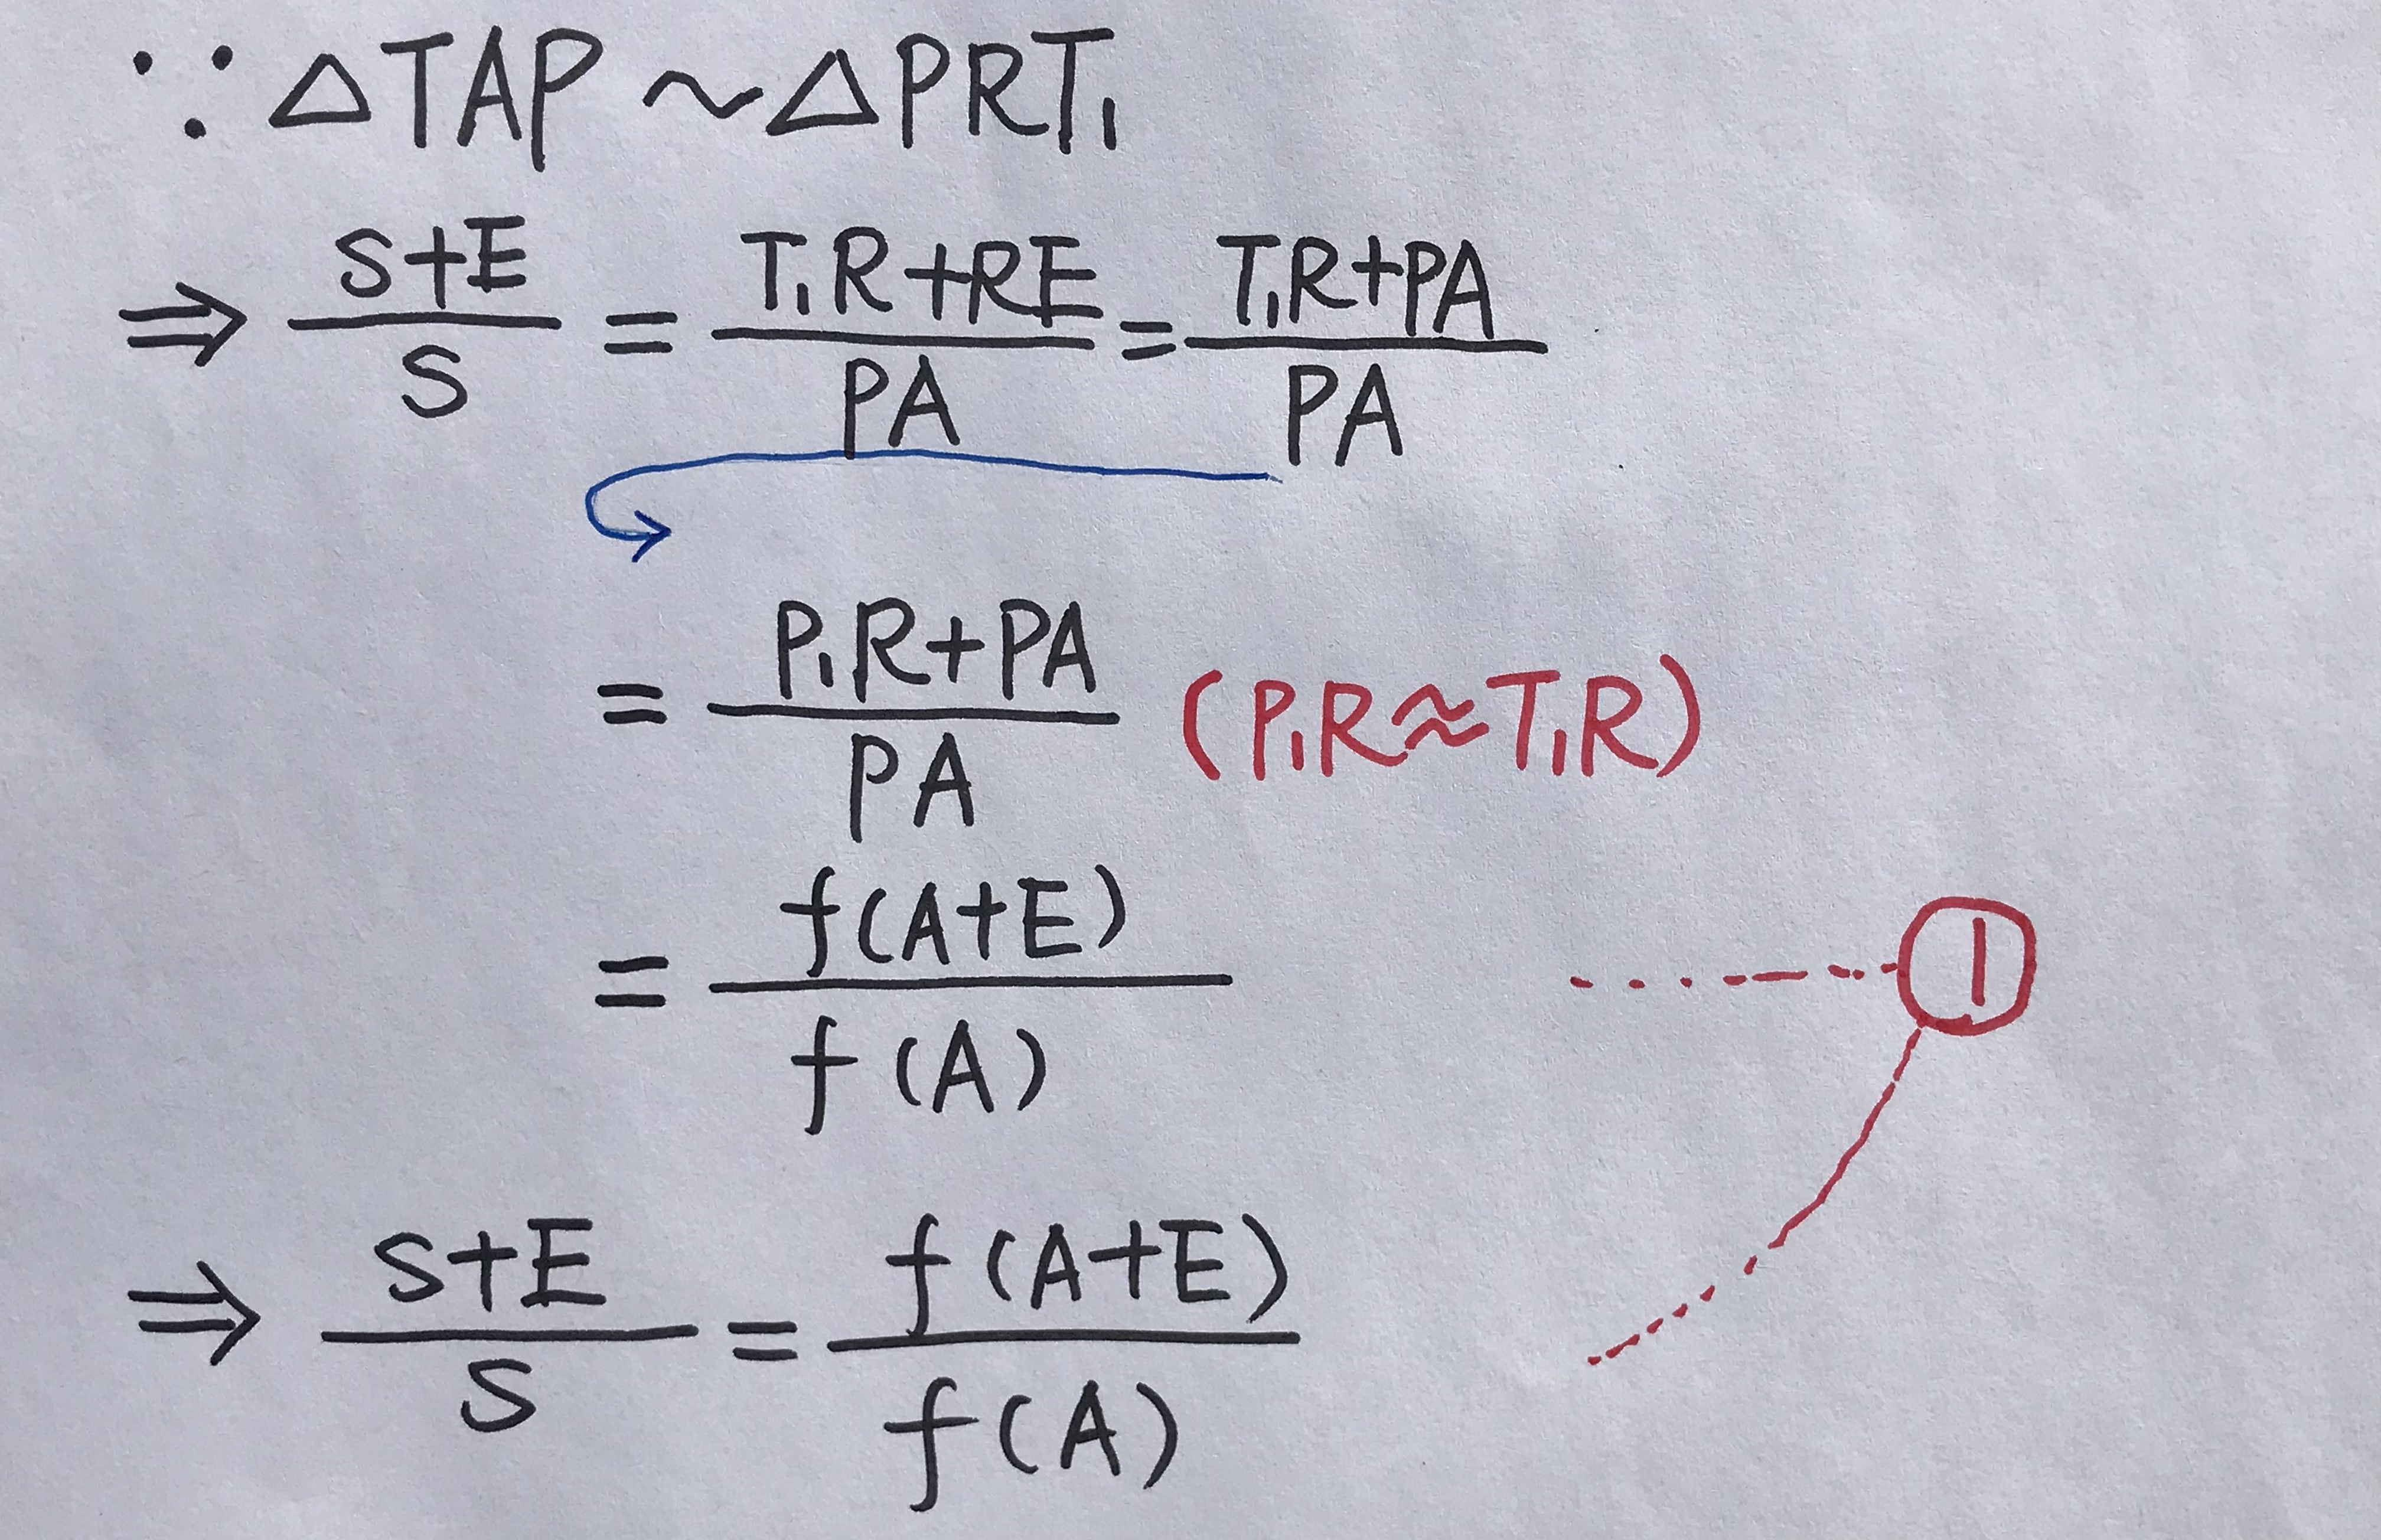 ∵ △TAP ~ △PRT₁
⇒ (S+E)/S = (T₁R+RE)/PA = (T₁R+PA)/PA
= (P₁R+PA)/PA (P₁R≈T₁R)
= f(A+E)/f(A) ①
⇒ (S+E)/S = f(A+E)/f(A)